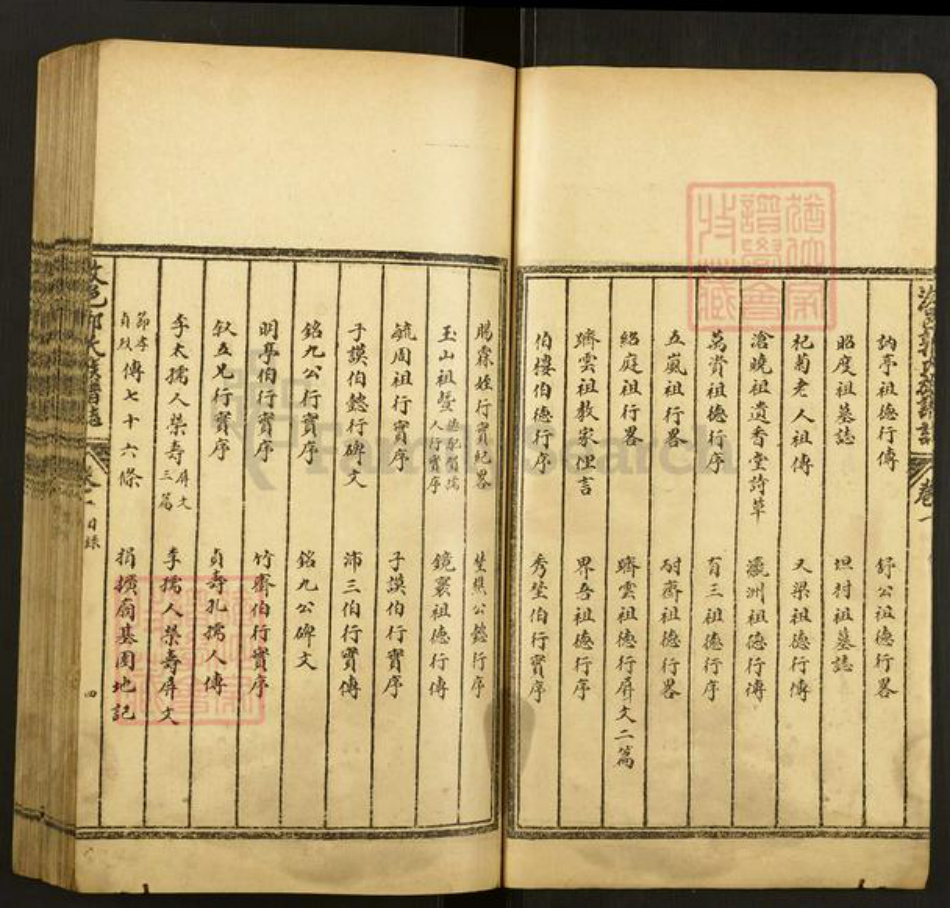 訥亭祖德行傳 舒公祖德行畧
昭度祖墓誌 坦村祖墓誌
杞菊老人祖傳 天梁祖德行傳
滄曉祖遺香堂詩草 瀛洲祖德行傳
萬資祖德行序 育三祖德行序
五嵐祖行畧 耐齋祖德行畧
紹庭祖行畧 躋雲祖德行屏文二篇
躋雲祖教家俚言 界吾祖德行序
伯樓伯德行序 秀堃伯行實序
賜霖姪行實紀畧 懿行序
玉山祖 人行實序 鏡寰祖德行傳
毓周祖行實序 子謨伯行實序
子謨伯懿行碑文 沛三伯行實傳
銘九公行實序 銘九公碑文
明亭伯行實序 竹齋伯行實序
叙五兄行實序 貞壽孔孺人傳
李太孺人榮壽屏文三篇 李孺人榮壽屏文
節孝貞烈傳七十六條 捐擴廟基園地記
卷一 目錄
四
卷一
FamilySearch